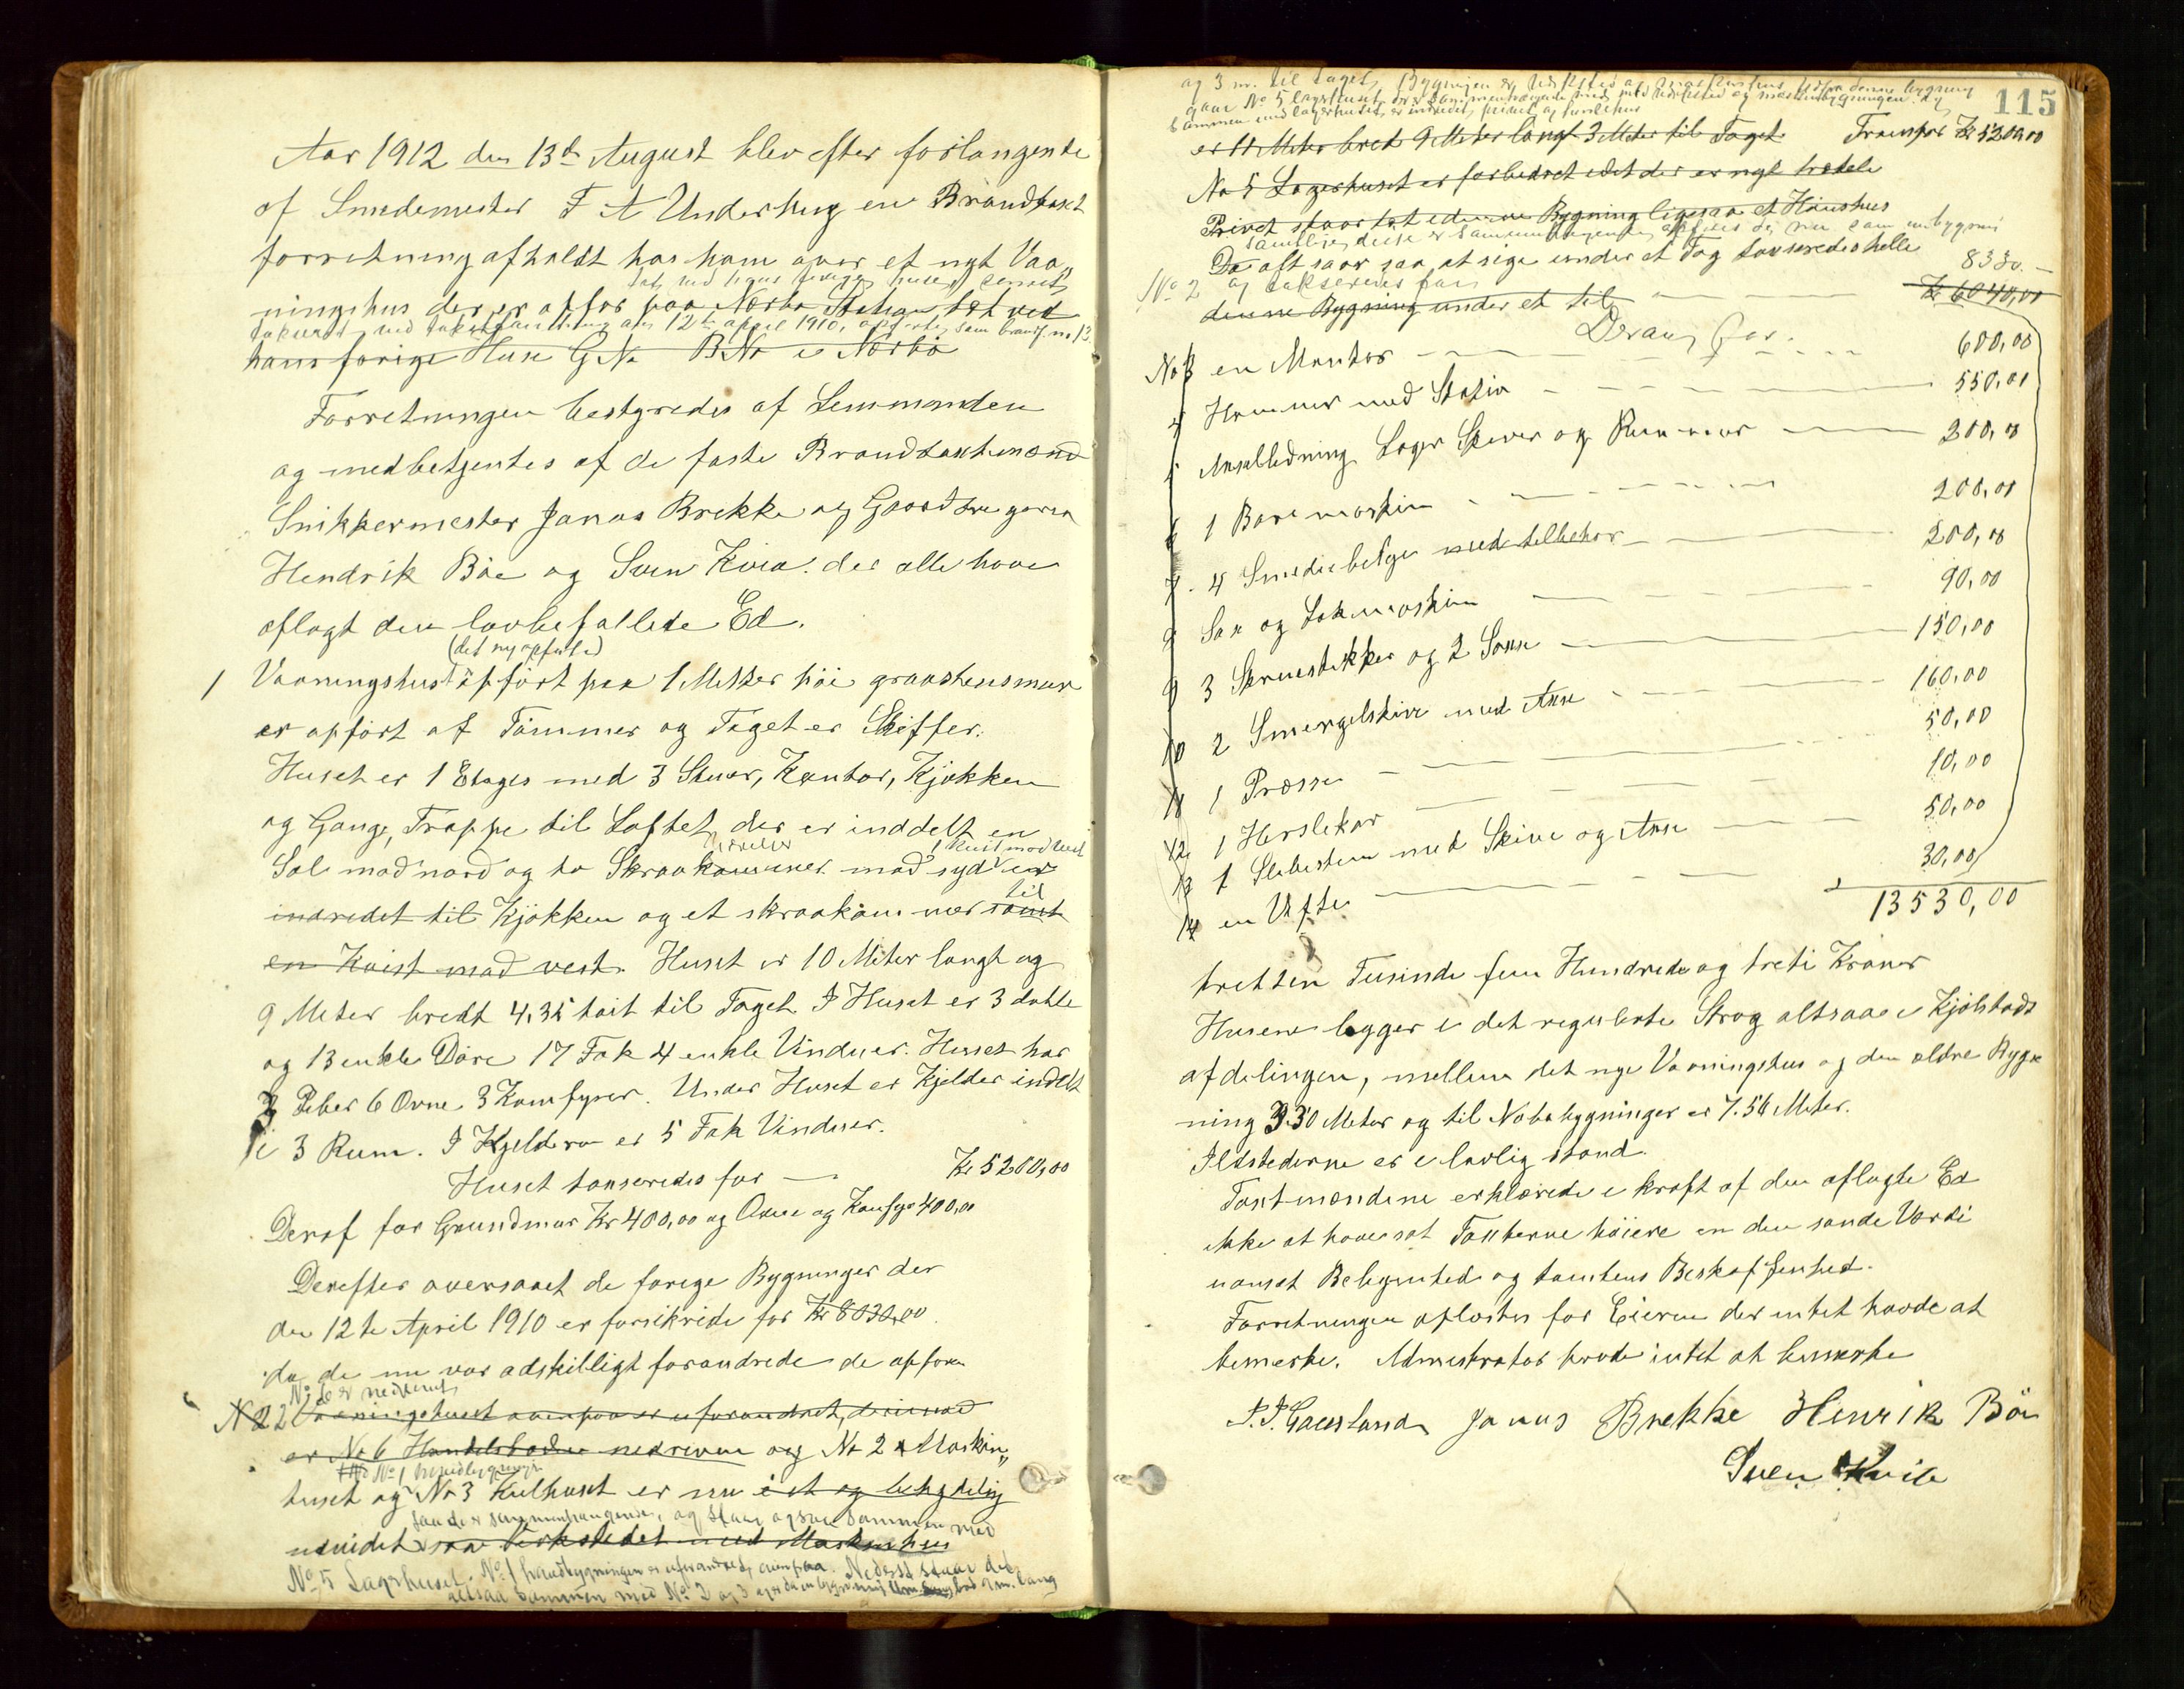 Aar 1912 den 13de August blev efter forlangende
af Smedemester T A Underhaug en Brandtaxt
forretning afholdt hos ham over et nyt Vaa„
ningshus der er opfør paa Nærbø Station tæt ved
takseret ved takstforretning afh 12te april 1910, opført som brandf. no 13
hans forige Huse GNo BNo i Nærbø
Forretningen bestyredes af Lensmanden
og medbetjentes af de faste Brandtaxtmænd
Snikkermester Janas Brekke og Gaardbrugeren
Hendrik Bøe og Sven Kvia. der alle have
aflagt den lovbefallede Ed.
(det ny opførte)
1 Vaaningshus opført paa 1 Metter høi graastensmur
er opført af Tømmer og Taget er Skiffer.
Huset er 1 Etages med 3 Stuer, Kontor, Kjøkken
og Gange, Trappe til Loftet, der er inddelt en
1 kvist mod vest
Sal mod nord og to Skraakammer mod syd er
til
indredet til Kjøkken og et skraakammer samt
en Kvist mod vest. Huset er 10 Meter langt og
9 Meter bredt 4,35 høit til Taget. I Huset er 3 doble
og 13 enkle Døre 17 Fak 4 enkle Vinduer. Huset har
2 Piber 6 Ovne 3 Komfyrer. Under Huset er Kjelder indelt
i 3 Rum. I Kjelderen er 5 Fak Vinduer.
Huset taxseredes for — Kr 5200,00
Deraf for Grundmur Kr 400,00 og Ovne og Komfyr 400,00
Derefter oversaaet de forige Bygninger der
den 12te April 1910 er forsikride for Kr 8030,00
da de nu var adskilligt forandrede de opføres
No 6 er nedrevet
No 2 Vaaningshuset ovenpaa er uforandret, derimod
er No 6 Handelsboden nedreven og No 2 Maskin„
No 1 hovedbygningen
huset og No 3 Kulhuset er nu i et og betydelig
saa de er sammenhængende, og staar ogsaa sammen med
utvidet saa Verkstedet med Maskinhus
No 5 Lagerhuset. No 1 hovedbygningen er uforandret ovenpaa. Nederst staar det
altsaa sammen med No 2 og 3 m. lang
115
og 3 m. til taget. Bygningen er Verksted og maskinhus denne bygning
gaar No 5 lagerhuset der er sammenhængende med verksted og maskinbygningen. og
sammen med lagerhuset er indredet privet og hønsehus
er 11 Meter bred 9 Meter langt 3 Meter til Taget Transpor Kr 5200,00
No 5 Lagerhuset er forbedret idet der er nyt
Privet staar tæt Bygning ligesaa et Hønshus
samtlige disse er sammenhængende, opføres de nu som en bygning
De alt saar saa at sige under et Tag taxseredes helle 8330.—
No 2 og takseredes for
denne Bygning under et til — Kr 6040,00
Deraf for.
No 3 en Montor — 600,00
4 Hammer med Stativ — 550,00
5 Axelledning Lager Skiver og Remmer — 200,00
6 1 Boremaskin — 200,00
7. 4 Smediebelger med tilbehør — 200,00
8 Sax og Lokmaskin — 90,00
9 3 Skruestikker og 2 Saxe — 150,00
10 2 Smergelskive med Axe — 160,00
11 1 Præsse — 50,00
12 1 Herslekar — 10,00
13 1 Slibesten med Skive og Axe — 50,00
14 en Vifte — 30,00
13530,00
tretten Tusinde fem Hundrede og treti Kroner
Husene legger i det regulerte Strøg altsaa i Kjølstads
afdelingen, mellem det nye Vaaningshus og den eldre Bygn
ning 3.30 Meter og til Nabobygninger er 7.50 Meter.
Ildstederne er i lovlig stand.
Taxtmændene erklærede i kraft af den aflagte Ed
ikke at have sat Taxterne høiere en den sande Værdi
uanset Beliggenhed og tomtens Beskaffenhed.
Forretningen oplæstes for Eieren der intet havde at
bemerke. Administrator havde intet at bemerke
T. T. Gausland Janas Brekke Henrik Bøe
Sven Kvia